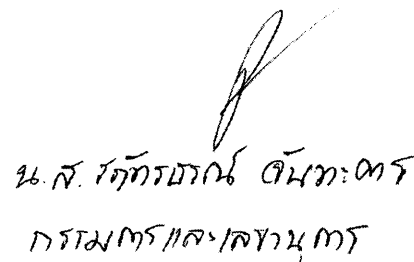 น.ส. รภัทรธรณ์ จันทะคาร
กรรมการและเลขานุการ